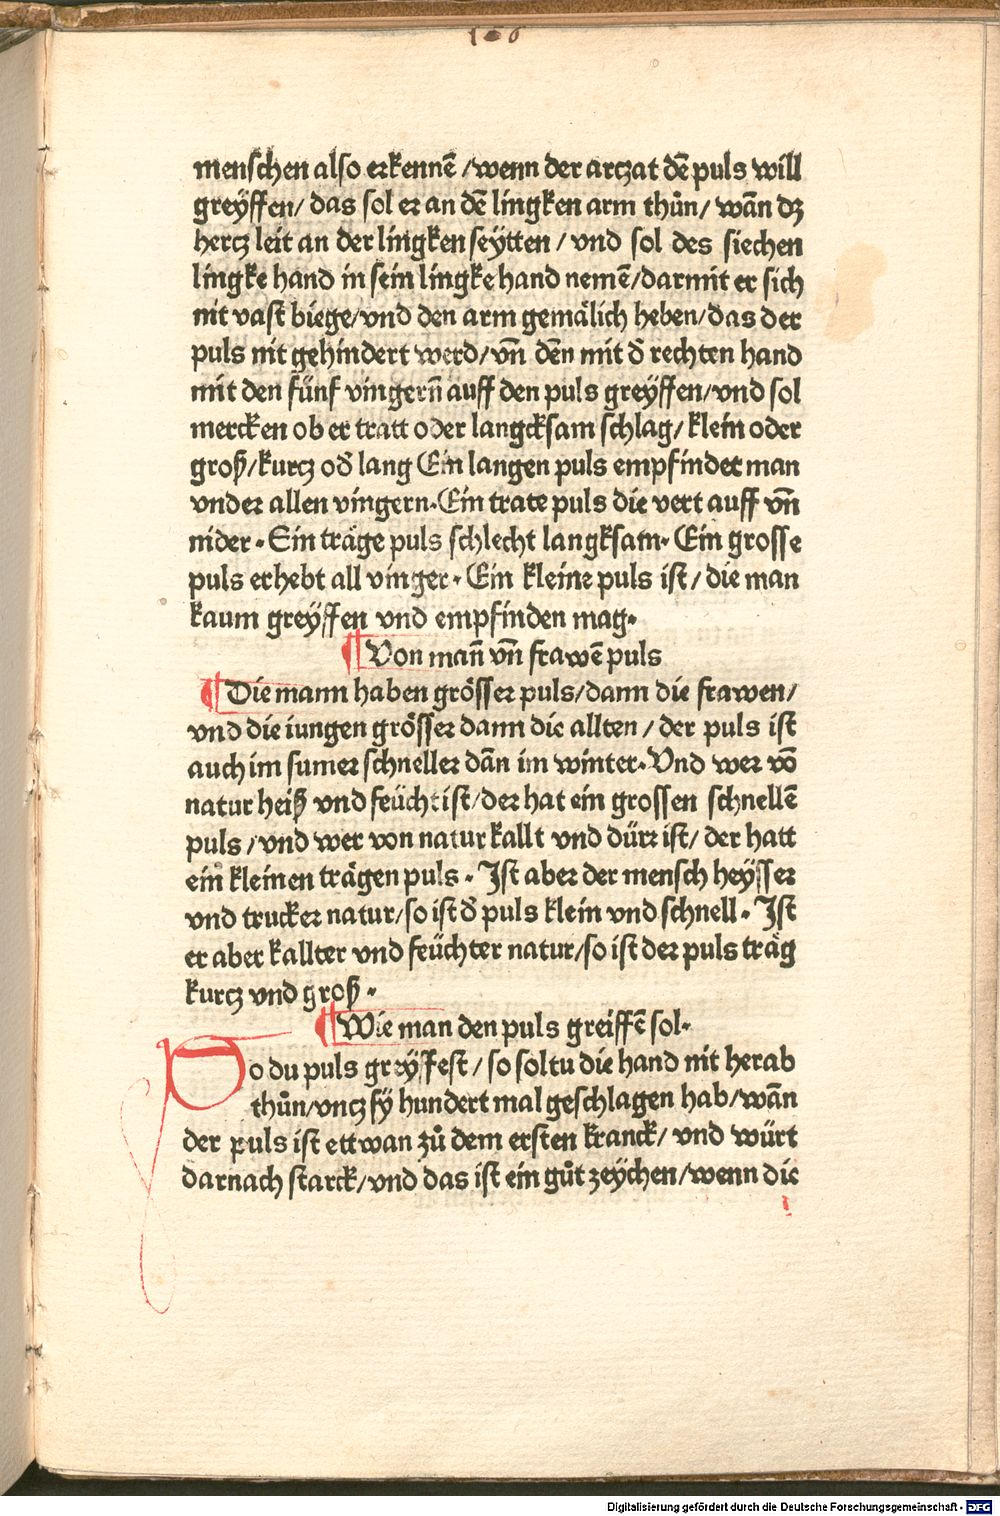 menschen also erkennē /wenn der arczat dē puls will
greÿffen/ das sol er an dē lingken arm thůn/ wān dz
hercz leit an der lingken seÿtten / vnd sol des siechen
lingke hand in sein lingke hand nemē/darmit er sich
nit vast biege/vnd den arm gemälich heben/das der
puls nit gehindert werd/vn̄ dēn mit d̄ rechten hand
mit den fünf vingern̄ auff den puls greÿffen/vnd sol
mercken ob er tratt oder langcksam schlag/ klein oder
groß/kurcz od̄ lang Ein langen puls empfindet man
vnder allen vingern. Ein trate puls die vert auff vn̄
nider. Ein träge puls schlecht langksam. Ein grosse
puls erhebt all vinger. Ein kleine puls ist/ die man
kaum greÿffen vnd empfinden mag.
¶ Von man̄ vn̄ frawē puls
¶ Die mann haben grösser puls/dann die frawen/
vnd die iungen grösser dann die allten / der puls ist
auch im sumer schneller dān im winter. Vnd wer vō
natur heiß vnd feücht ist/der hat ein grossen schnellē
puls /vnd wer von natur kallt vnd dürr ist/ der hatt
ein kleinen trägen puls. Ist aber der mensch heÿsser
vnd trucker natur/so ist d̄ puls klein vnd schnell. Ist
er aber kallter vnd feüchter natur/so ist der puls träg
kurcz vnd groß.
¶ Wie man den puls greiffē sol.
So du puls greÿffest / so soltu die hand nit herab
thůn/vncz sÿ hundert mal geschlagen hab/wān
der puls ist ettwan zů dem ersten kranck/ vnd würt
darnach starck/vnd das ist ein gůt zeÿchen/wenn die
Digitalisierung gefördert durch die Deutsche Forschungsgemeinschaft - DFG